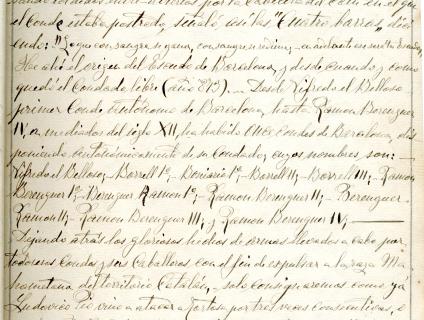 el Conde estaba postrado, señaló con las "Cuatro barras", dici
endo: "Lo que con sangre se gana, con sangre se
He ahí el origen del Escudo de Barcelona, y desde cuando y como
quedó el Condado libre (año 873). — Desde Vifredo el Belloso
primer Conde autónomo de Barcelona, hasta Ramon Berenguer
IV, a mediados del siglo XII, ha habido once condes de Barcelona, dis
poniendo autonómicamente de su Condado, cuyos nombres, son: —
Vifredo el Belloso, - Borrell Iº, - Borrell II; - Borrell III; - Ramon
Berenguer Iº; - Berenguer Ramon Iº; - Ramon Berenguer II; - Berenguer
Ramon II; - Ramon Berenguer III; y Ramon Berenguer IV; —
Dejando atrás los gloriosos hechos de armas llevados a cabo por
todos esos Condes y sus Caballeros con el fin de expulsar a la raza Ma
hometana del territorio Catalán, - solo consignaremos como ya
Ludovico Pio vino a atacar a Tortosa por tres veces consecutivas, é